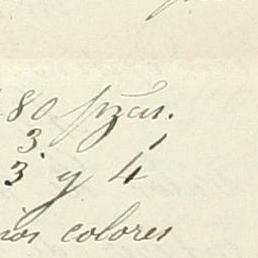 80 pzas.
3 1
3 y 4
colores